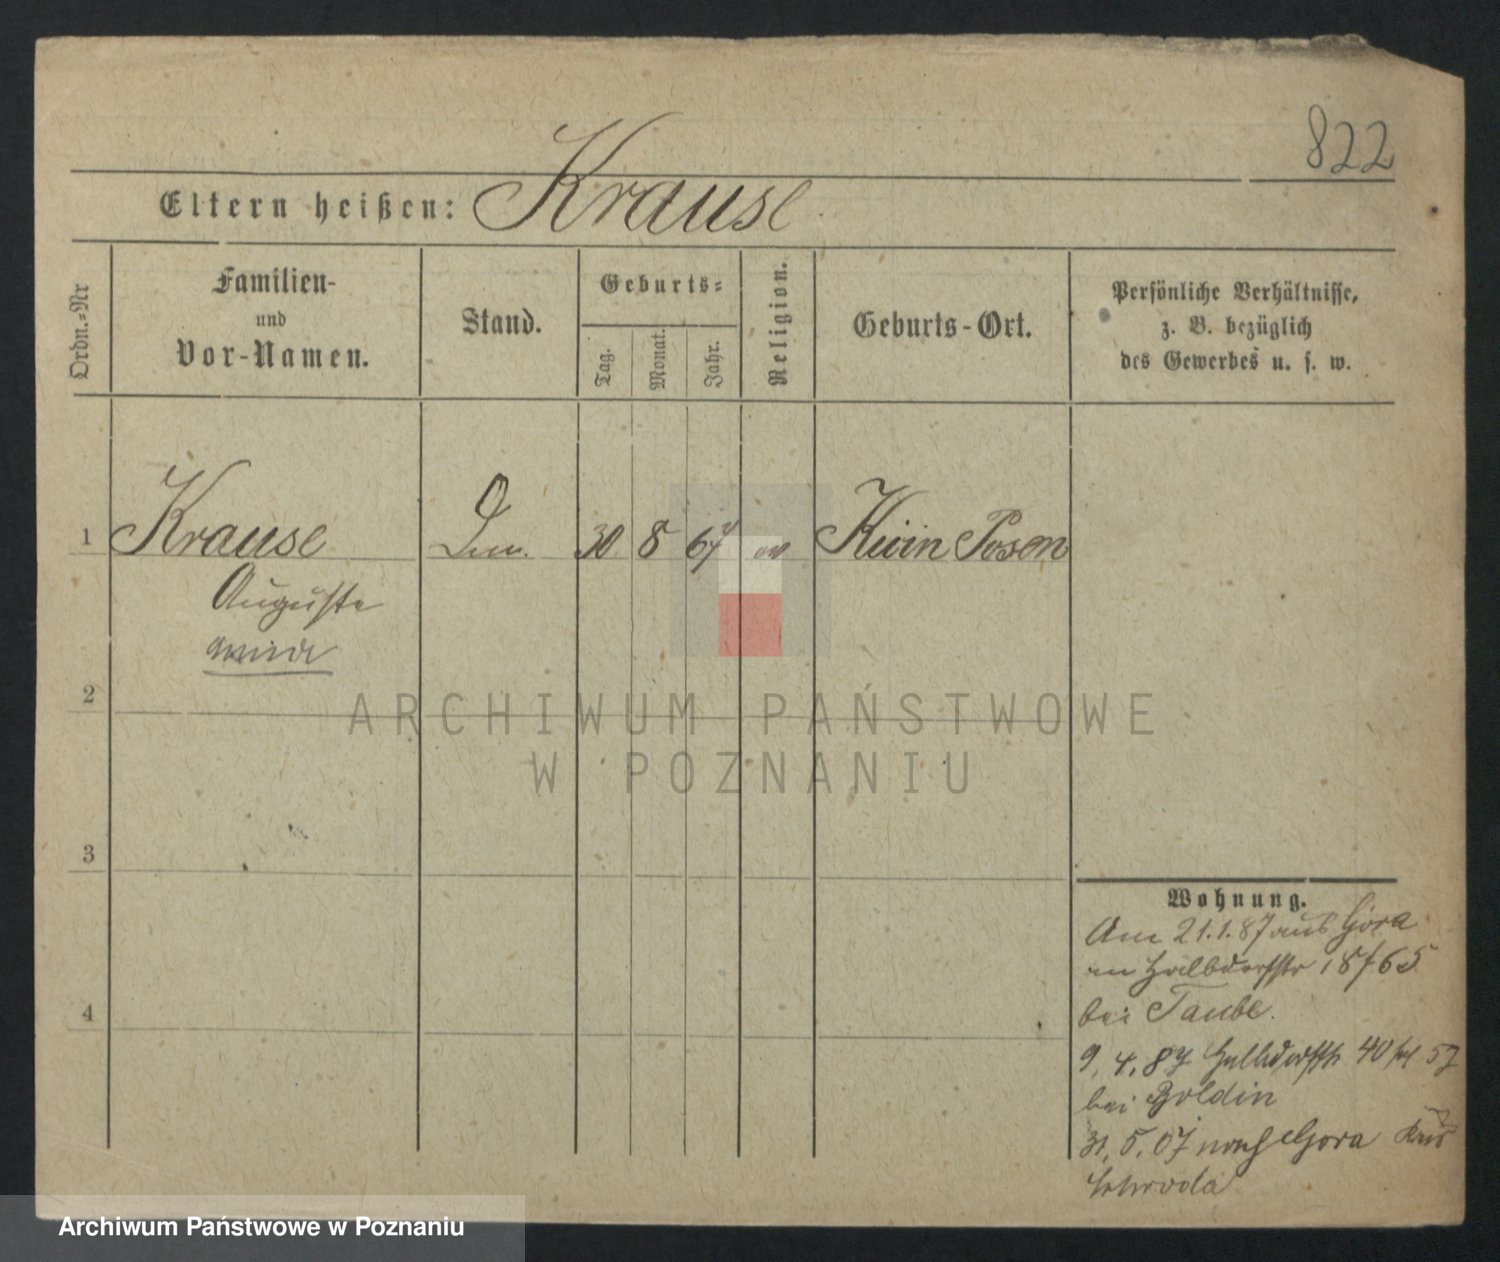 822
Eltern heißen: Krause
Ordn.-Nr
Familien-
und
Vor-Namen.
Stand.
Geburts-
Tag.
Monat.
Jahr.
Religion.
Geburts-Ort.
Persönliche Verhältnisse,
z. B. bezüglich
des Gewerbes u. s. w.
1 Krause 30 8 67 ev Posen
Auguste
2
ARCHIWUM PAŃSTWOWE
W POZNANIU
3
Wohnung.
Am 21.1.87 aus Gora
Halbdorfstr 18/65
bei Taube.
4
9. 4. 87 Halbdorfstr 40 bei
bei Goldin
31. 5. 07 nach Gora Kreis
Schroda
Archiwum Państwowe w Poznaniu